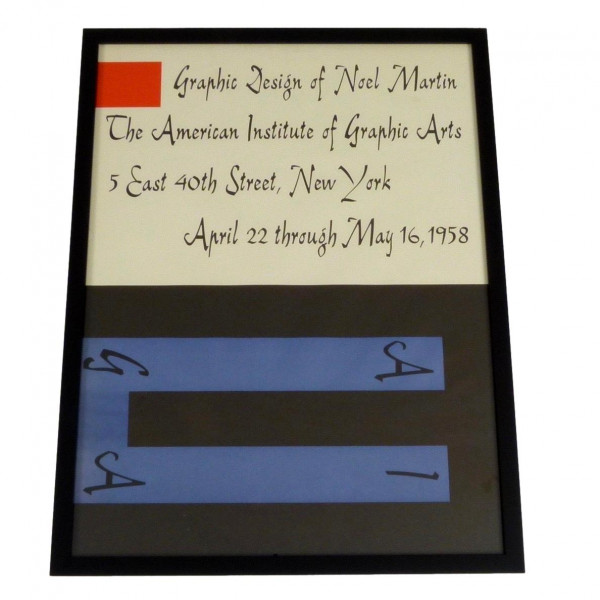 Graphic Design of Noel Martin
The American Institute of Graphic Arts
5 East 40th Street, New York
April 22 through May 16, 1958
G A
A I